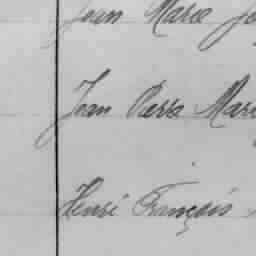 Jean Marie
Jean Pierre Mari
Henri François